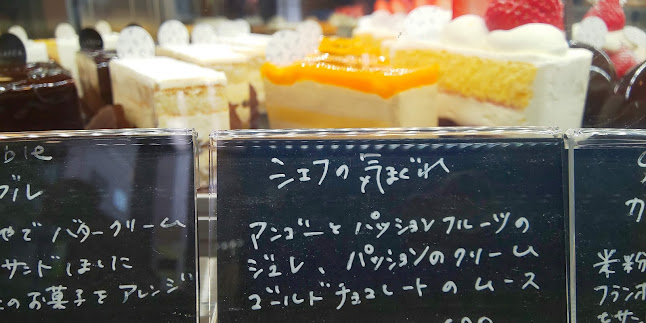 ble
ブル
やで バタークリーム
サンドしました
のお菓子を アレンジ
シェフの 気まぐれ
アンゴーと パッションフルーツの
ジュレ、パッションのクリーム
ゴールドチョコレートの ムース
カ
米粉
フランボ
をサン